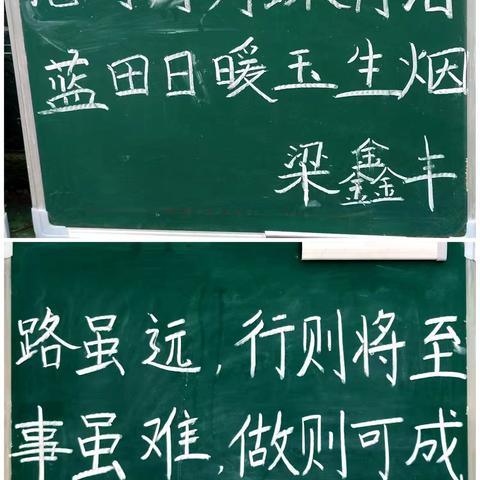 蓝田日暖玉生烟
梁鑫丰
路虽远,行则将至
事虽难,做则可成